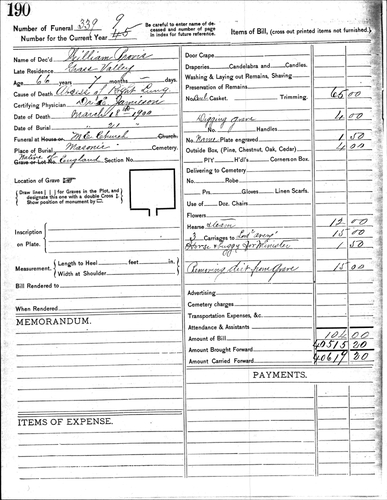 190
Number of Funeral 339 9
Number for the Current Year 45
Be carefully to enter name of deceased and number of page in index for future reference.
Name of Dec'd William
Late Residence Grass Valley
Age 66 years 7 months days.
Cause of Death of Right Lung
Certifying Physician Dr. Jamieson
Date of Death March 18th 1900
Date of Burial " 21 "
Funeral at House M.E. Church Church.
Place of Burial Masonic Cemetery.
Native of England
Grave or Lot No. Section No.
Location of Grave
Draw lines for Graves in the Plot, and designate this one with a double Cross
Show position of monument by
Inscription on Plate.
Measurement, Length to Heel feet in.
Width at Shoulder
Bill Rendered to
When Rendered
MEMORANDUM.
ITEMS OF EXPENSE.
Items of Bill, (cross out printed items not furnished.)
Door Crape
Draperies Candelabra and Candles.
Washing & Laying out Remains, Shaving
Preservation of Remains
No. Casket. Trimming. 65.00
Digging grave 4.00
No. Handles
No. Name Plate engraving 1.50
Outside Box, (Pine, Chestnut, Oak, Cedar) 4.00
P/Y H'd's Corners on Box.
Delivering to Cemetery
No. Robe
Prs. Gloves Linen Scarfs.
Use of Doz. Chairs
Flowers
Hearse 12.00
3 Carriages to 15.00
Horse & buggy for Minister 1.50
Removing dirt from Grave 15.00
Advertising
Cemetery charges
Transportation Expenses, &c.
Attendance & Assistants
Amount of Bill 104.00
Amount Brought Forward 40515 20
Amount Carried Forward 40619 20
PAYMENTS.